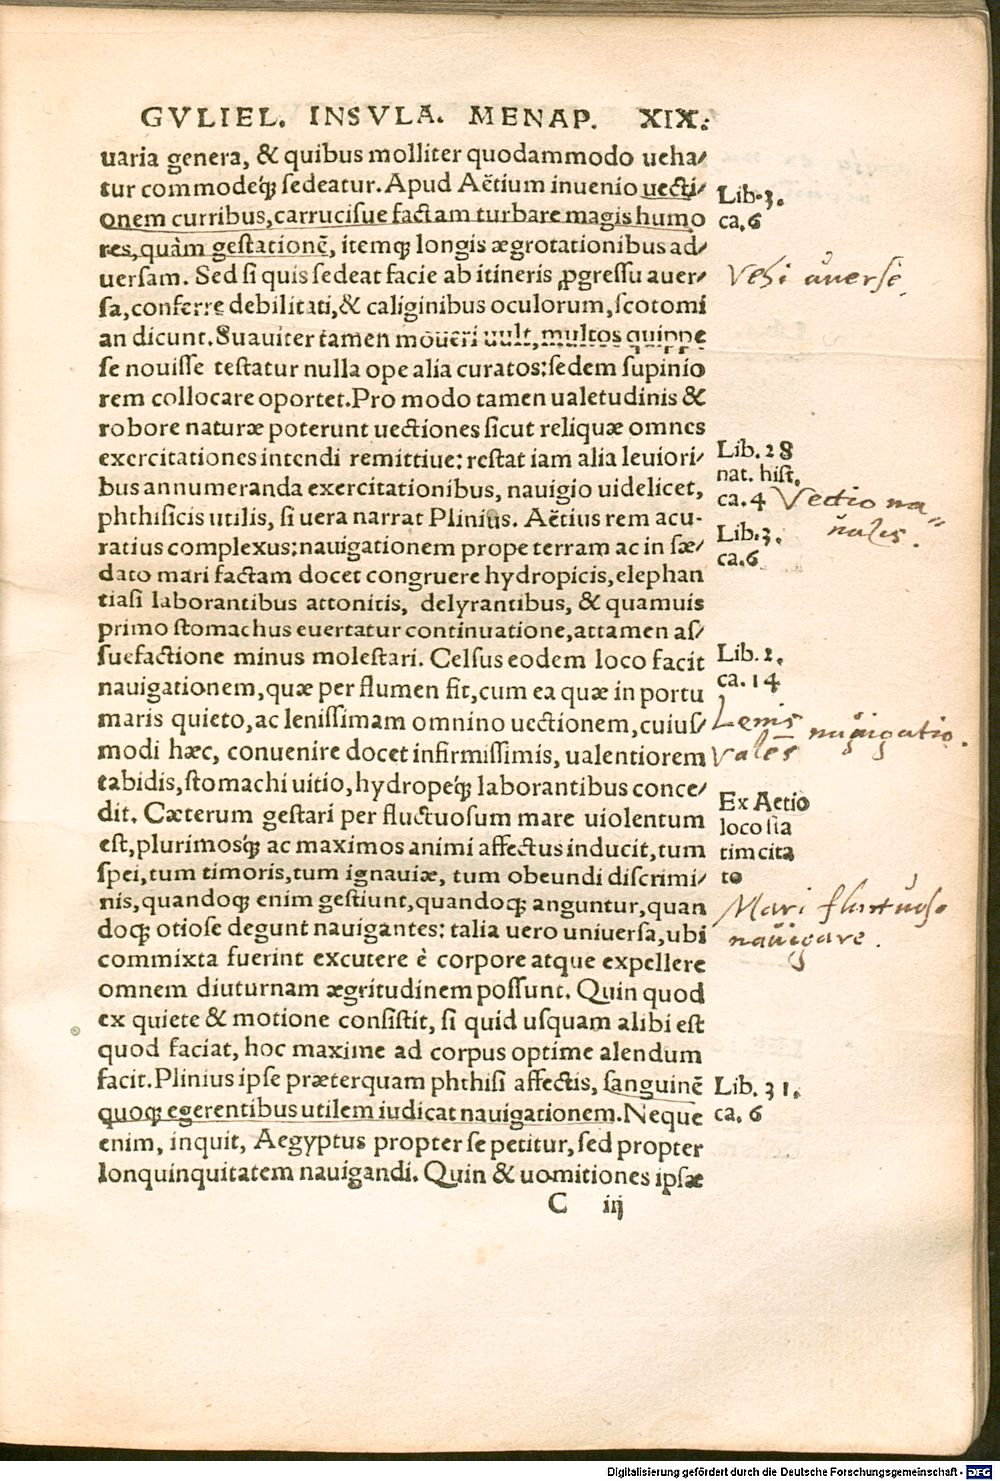 GVLIEL. INSVLA. MENAP. XIX.
uaria genera, & quibus molliter quodammodo ueha/
tur commodeq́ꝫ sedeatur. Apud Aëtium inuenio uecti/
onem curribus, carrucisue factam turbare magis humo
res, quàm gestationē, itemqꝫ longis ægrotationibus ad/
uersam. Sed si quis sedeat facie ab itineris ꝓgressu auer/
sa, conferre debilitati, & caliginibus oculorum, scotomi
an dicunt. Suauiter tamen moueri uult, multos quippe
se nouisse testatur nulla ope alia curatos: sedem supinio
rem collocare oportet. Pro modo tamen ualetudinis &
robore naturæ poterunt uectiones sicut reliquæ omnes
exercitationes intendi remittiue: restat iam alia leuiori/
bus annumeranda exercitationibus, nauigio uidelicet,
phthisicis utilis, si uera narrat Plinius. Aëtius rem acu-
ratius complexus: nauigationem prope terram ac in sæ/
dato mari factam docet congruere hydropicis, elephan
tiasi laborantibus attonitis, delyrantibus, & quamuis
primo stomachus euertatur continuatione, attamen as/
suefactione minus molestari. Celsus eodem loco facit
nauigationem, quæ per flumen fit, cum ea quæ in portu
maris quieto, ac lenissimam omnino uectionem, cuius/
modi hæc, conuenire docet infirmissimis, ualentiorem
tabidis, stomachi uitio, hydropeq́ꝫ laborantibus conce/
dit. Cæterum gestari per fluctuosum mare uiolentum
est, plurimosq́ꝫ ac maximos animi affectus inducit, tum
spei, tum timoris, tum ignauiæ, tum obeundi discrimi/
nis, quandoqꝫ enim gestiunt, quandoqꝫ anguntur, quan
doqꝫ otiose degunt nauigantes: talia uero uniuersa, ubi
commixta fuerint excutere è corpore atque expellere
omnem diuturnam ægritudinem possunt. Quin quod
ex quiete & motione consistit, si quid usquam alibi est
quod faciat, hoc maxime ad corpus optime alendum
facit. Plinius ipse præterquam phthisi affectis, sanguinē
quoqꝫ egerentibus utilem iudicat nauigationem. Neque
enim, inquit, Aegyptus propter se petitur, sed propter
lonquinquitatem nauigandi. Quin & uomitiones ipsæ
C iij
Lib. 3.
ca. 6
Vehi auerse.
Lib. 28
nat. hist.
ca. 4
Vectio na=
uales.
Lib. 3.
ca. 6
Lib. 2.
ca. 14
Lenis nauigatio.
vales
Ex Aetio
loco sta
tim cita
to
Mari fluctuoso
nauigare.
Lib. 31.
ca. 6
Digitalisierung gefördert durch die Deutsche Forschungsgemeinschaft - DFG